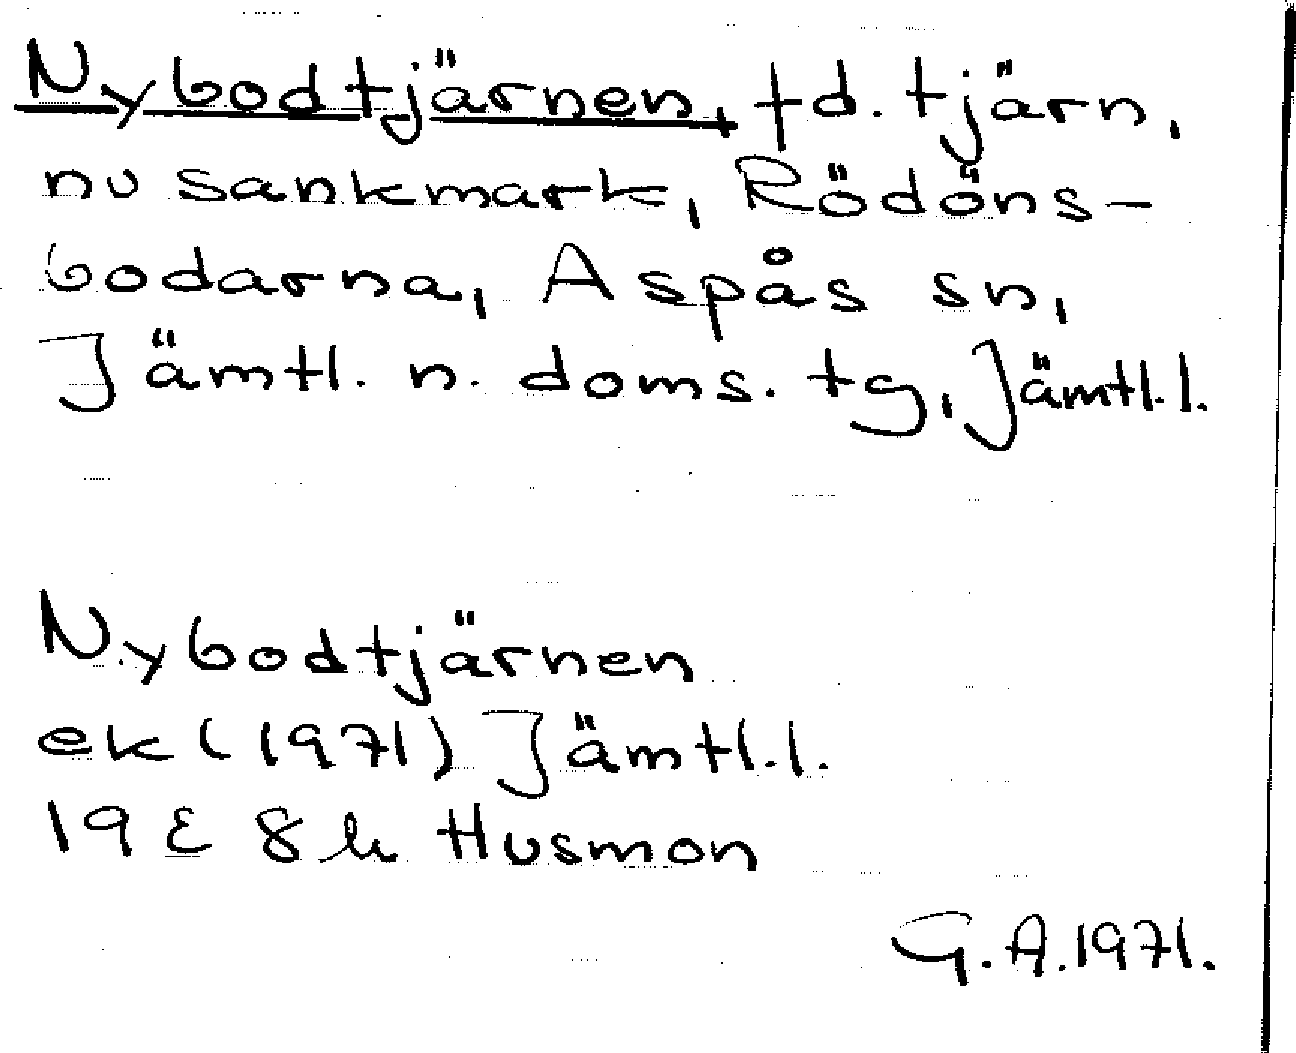 Nybodtjärnen, f d. tjärn,
nu sankmark, Rödöns-
bodarna, Aspås sn,
Jämtl. n. doms. tg, Jämtl. l.
Nybodtjärnen
ek (1971) Jämtl. l.
19 E 8 h Husmon
G. A. 1971.